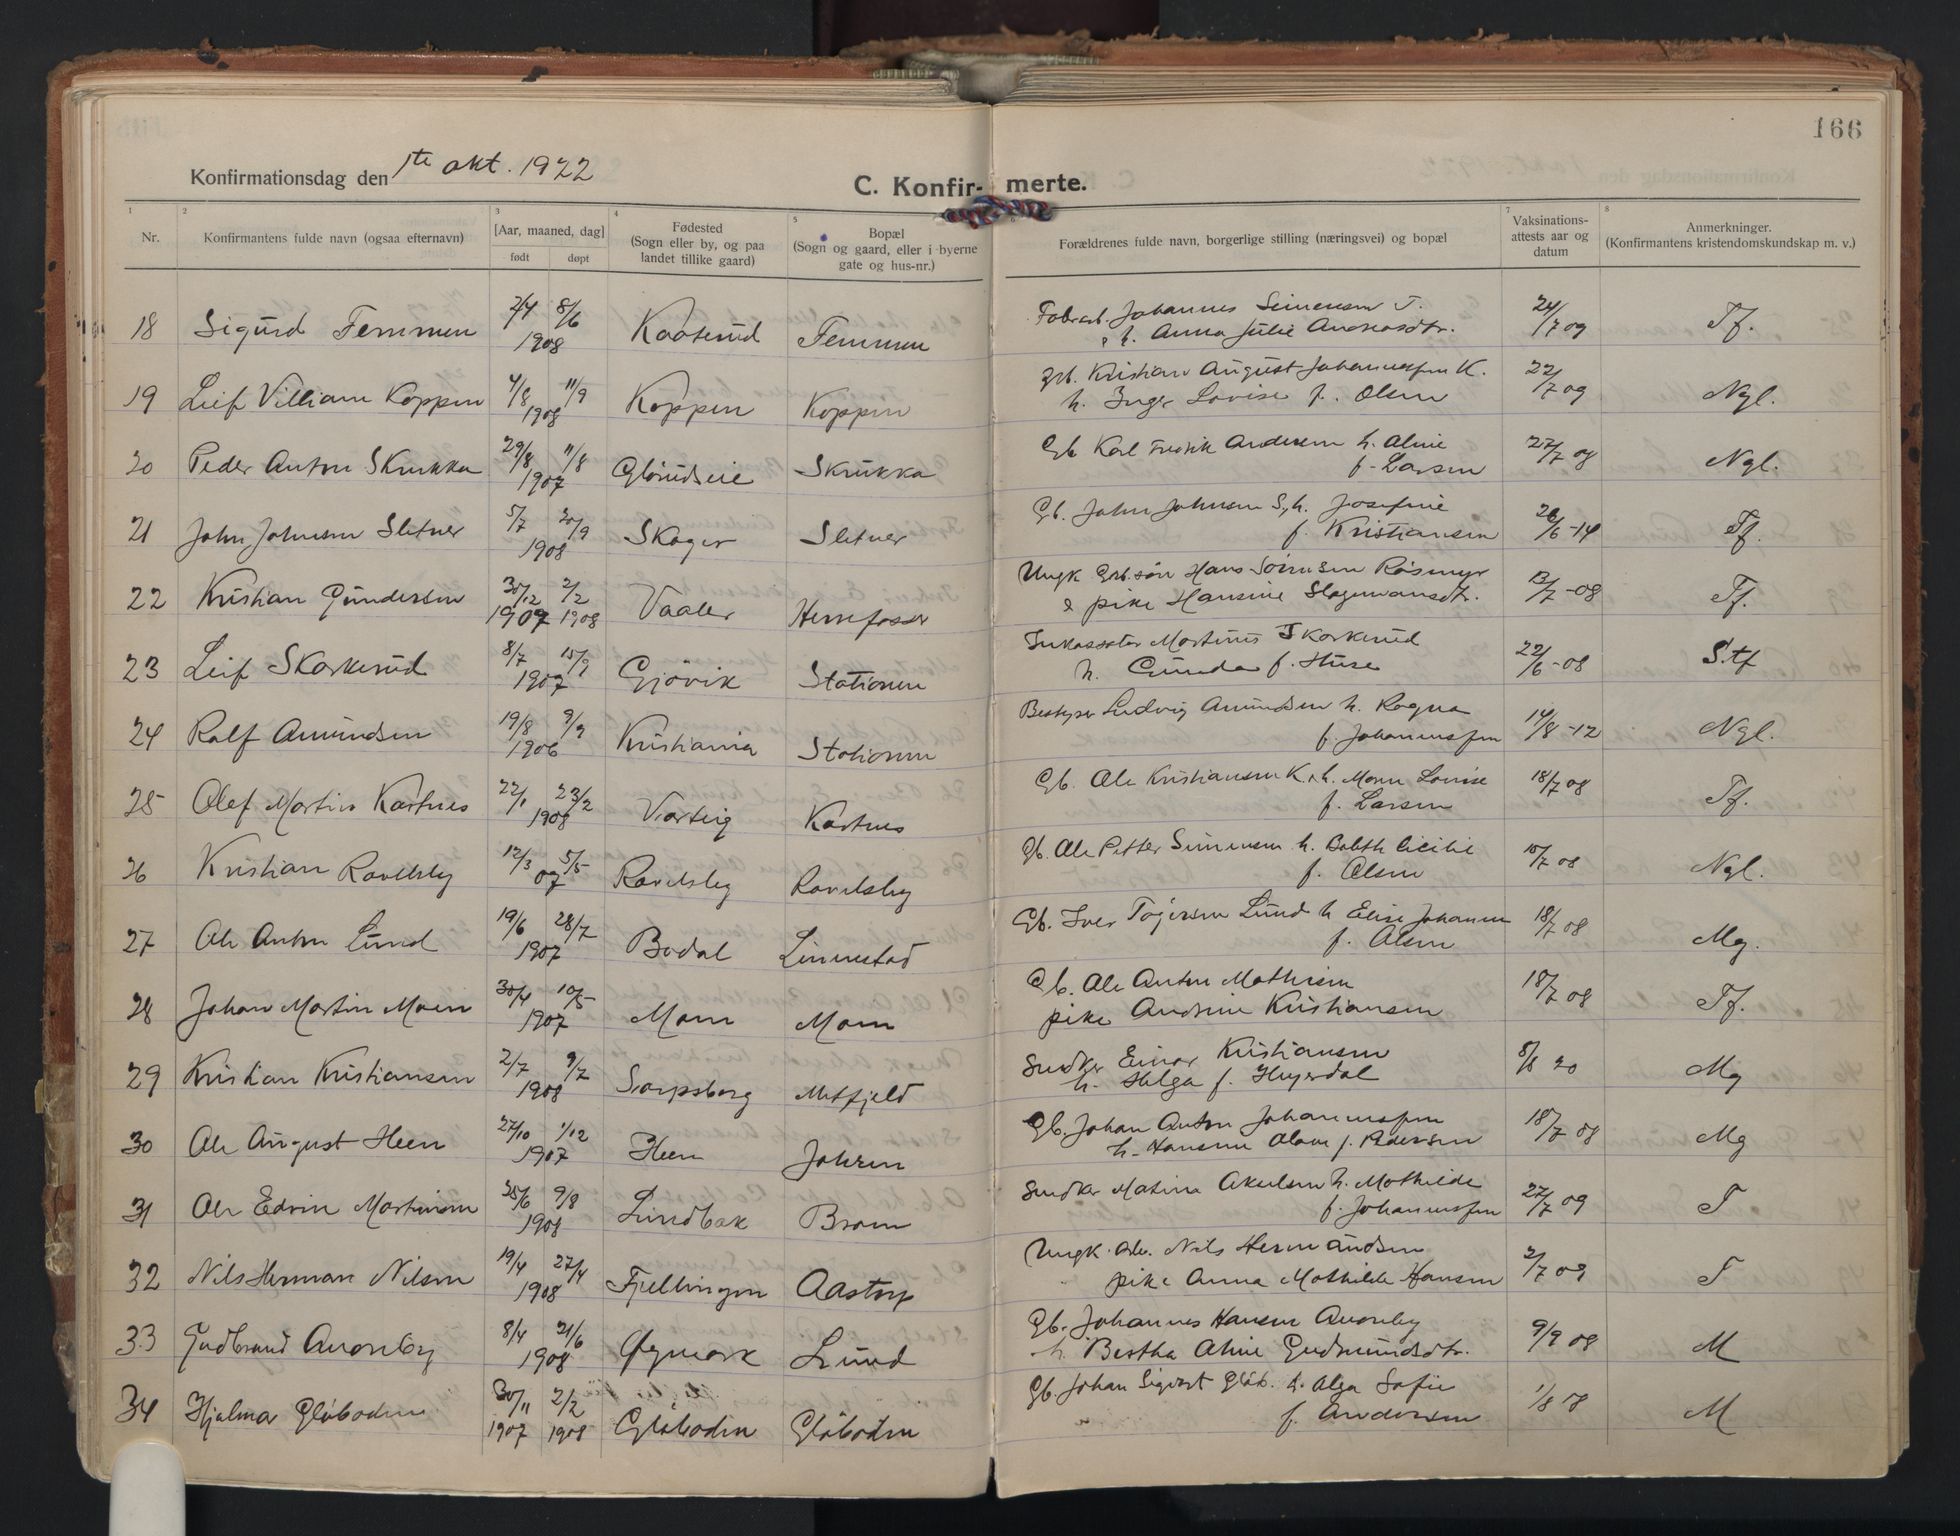 166
Konfirmationsdag den 1te okt. 1922
C. Konfir- merte.
1 2 3 4 5 6 7 8
Nr. Konfirmantens fulde navn (ogsaa efternavn) [Aar, maaned, dag] født døpt Fødested (Sogn eller by, og paa landet tillike gaard) Bopæl (Sogn og gaard, eller i byerne gate og hus-nr.) Forældrenes fulde navn, borgerlige stilling (næringsvei) og bopæl Vaksinations-attests aar og datum Anmerkninger. (Konfirmantens kristendomskundskap m. v.)
18 Sigurd Femmen 2/4 8/6 1908 Kaaterud Femmen Fabrarb. Johannes Simensen F. 24/7 09 Tf.
h. Anna Julie Andreasdtr.
19 Leif Villiam Koppen 4/8 11/9 1908 Koppen Koppen Grb. Kristian August Johannessen K. 22/7 09 Ngl.
h. Inger Lovise f. Olsen
20 Peder Anton Skrukka 29/8 11/8 1907 Skrukka Gb. Karl Fredrik Andersen h. Aline 27/7 08 Ngl.
f. Larsen
21 John Johnsen Sletner 5/7 20/9 1908 Skager Sletner Gb. John Johnsen S, h. Josefine 26/6-14 Tf.
f. Kristiansen
22 Kristian Gundersen 30/12 1907 2/2 1908 Vaaler Herrefosser Ungk. Grb.søn Hans Sørensen Røsmyr 13/7-08 Tf.
& pike Hansine
23 Leif Skarkerud 8/7 15/9 1907 Gjøvik Stationen Inkassator Martinus Skarkerud 22/6-08 S.tf
h. Gunda f. Huse
24 Ralf Amundsen 19/8 9/9 1906 Kristiania Stationen Bestyrer Ludvig Amundsen h. Ragna 14/8-12 Ngl.
f. Johannessen
25 Olef Martin Kastnes 22/1 23/2 1908 Varteig Kastnes Gb. Ole Kristiansen K. h. Maren Lovise 18/7 08 Tf.
f. Larsen
26 Kristian Ravelsby 12/3 5/5 07 Ravelsby Ravelsby Gb. Ole Petter Simensen h. Bolette Cicilie 15/7 08 Ngl.
f. Olsen
27 Ole Anton Lund 19/6 28/7 1907 Bodal Linnestad Gb. Iver Torgersen Lund h Elise Johanne 18/7 08 Mg.
f. Olsen
28 Johan Martin Moen 30/4 10/5 1907 Moen Moen Gb. Ole Anton Mathisen 18/7 08 Tf.
pike Andrine Kristiansen
29 Kristian Kristiansen 2/7 9/7 1908 Sarpsborg Metfjeld Snedker Einar Kristiansen 8/8 20 Mg
h. Helga f. Heyerdal
30 Ole August Heen 27/10 1/12 1907 Heen Johren Gb. Johan Anton Johannessen 18/7 08 Mg
h. Hansine Olava f. Pedersen
31 Ole Edvin Martinsen 25/6 9/8 1908 Lundbak Braten Snedker Matinus Akselsen h. Mathilde 27/7 09 T
f. Johannessen
32 Nils Herman Nilsen 19/4 27/4 1908 Fjellingen Aastorp Ungk. Arb. Nils Hermandsen 2/7 09 T
pike Anna Mathilde Hansen
33 Gudbrand Aronsby 8/4 21/6 1908 Øymark Lund Gb. Johannes Hansen Aronsby 9/9 08 M
h. Bertha Aline Gudmundsdtr.
34 Hjalmar Gløboden 30/11 1907 2/2 1908 Gløboden Gløboden Gb. Johan Sigvart Gløb. h. Olga Sofie 1/8 18 M
f. Andersen